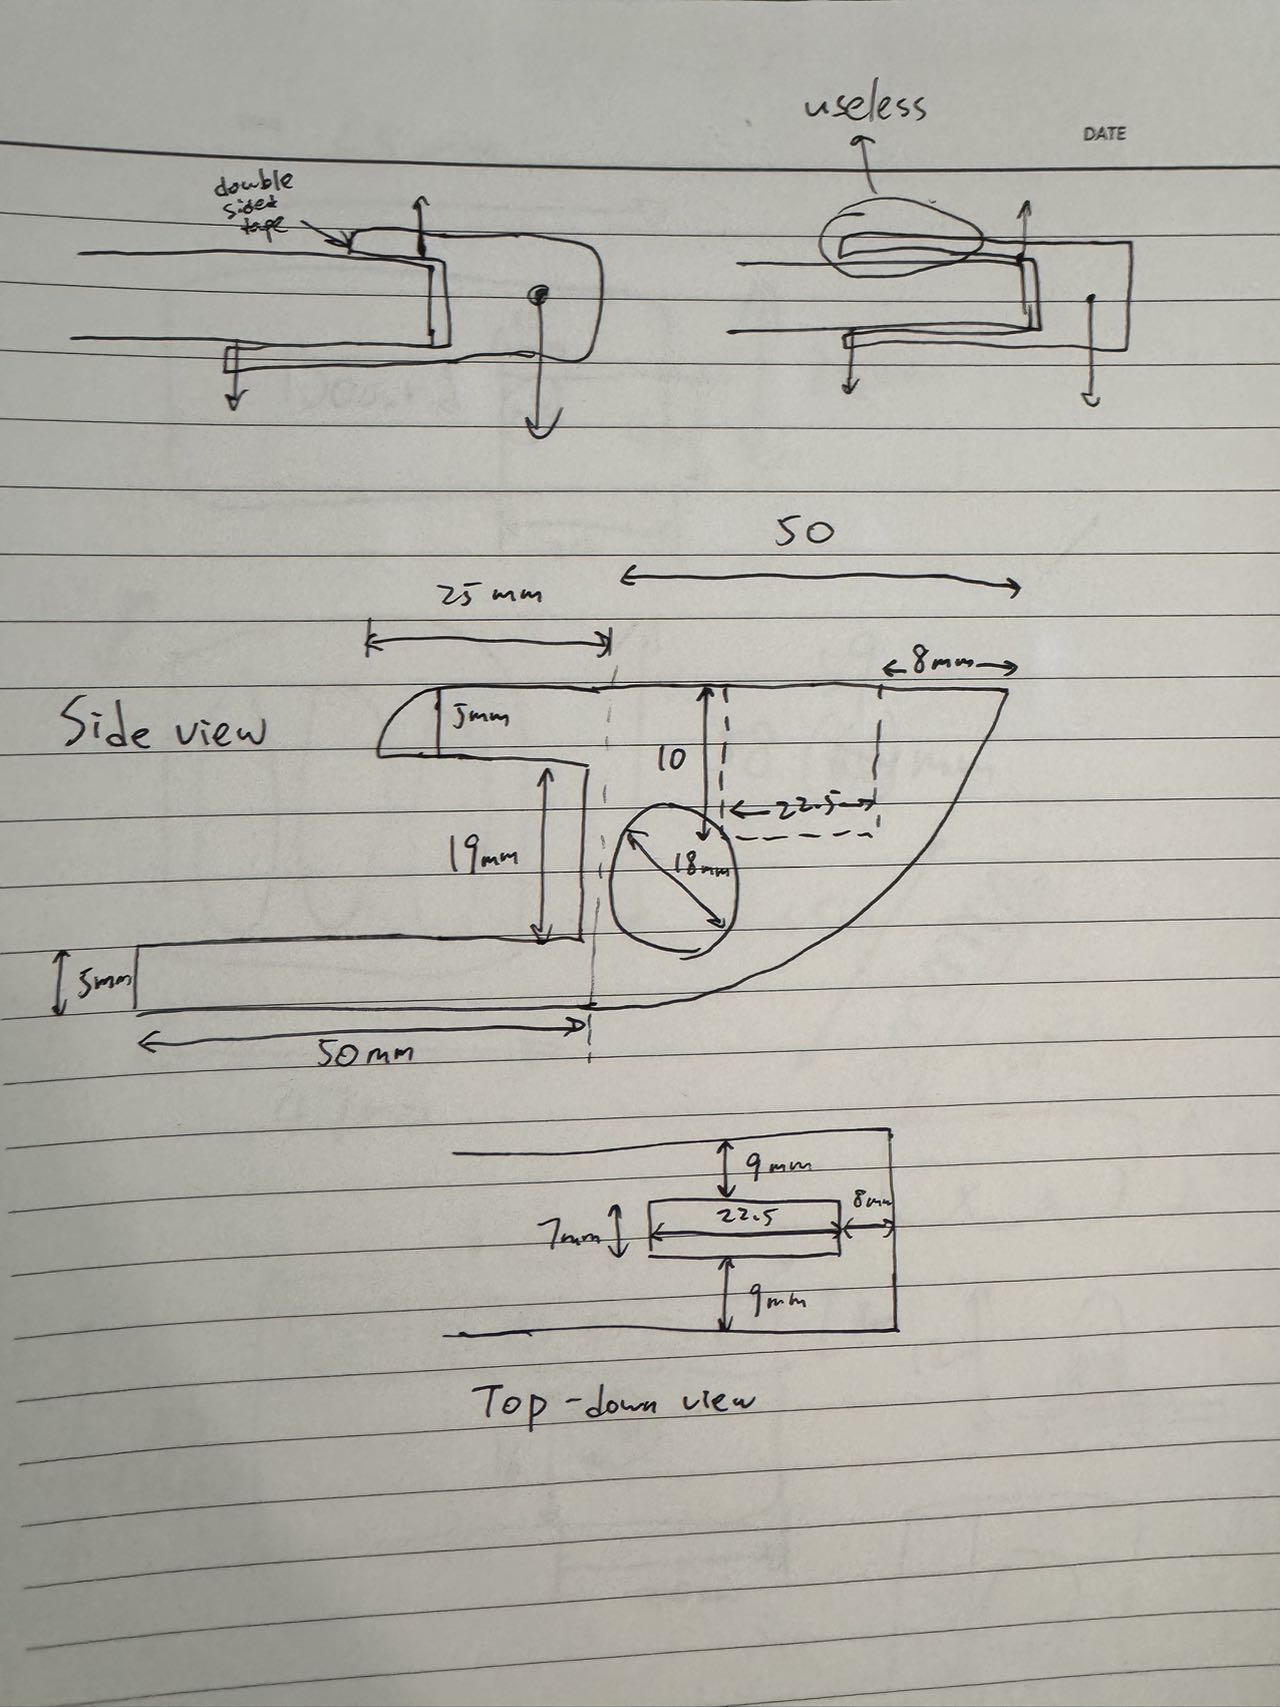 useless
DATE
double
sided
tape
50
25 mm
8mm
Side view
5mm
10
22.5
19mm
18mm
5mm
50mm
9mm
7mm
22.5
8mm
9mm
Top-down view